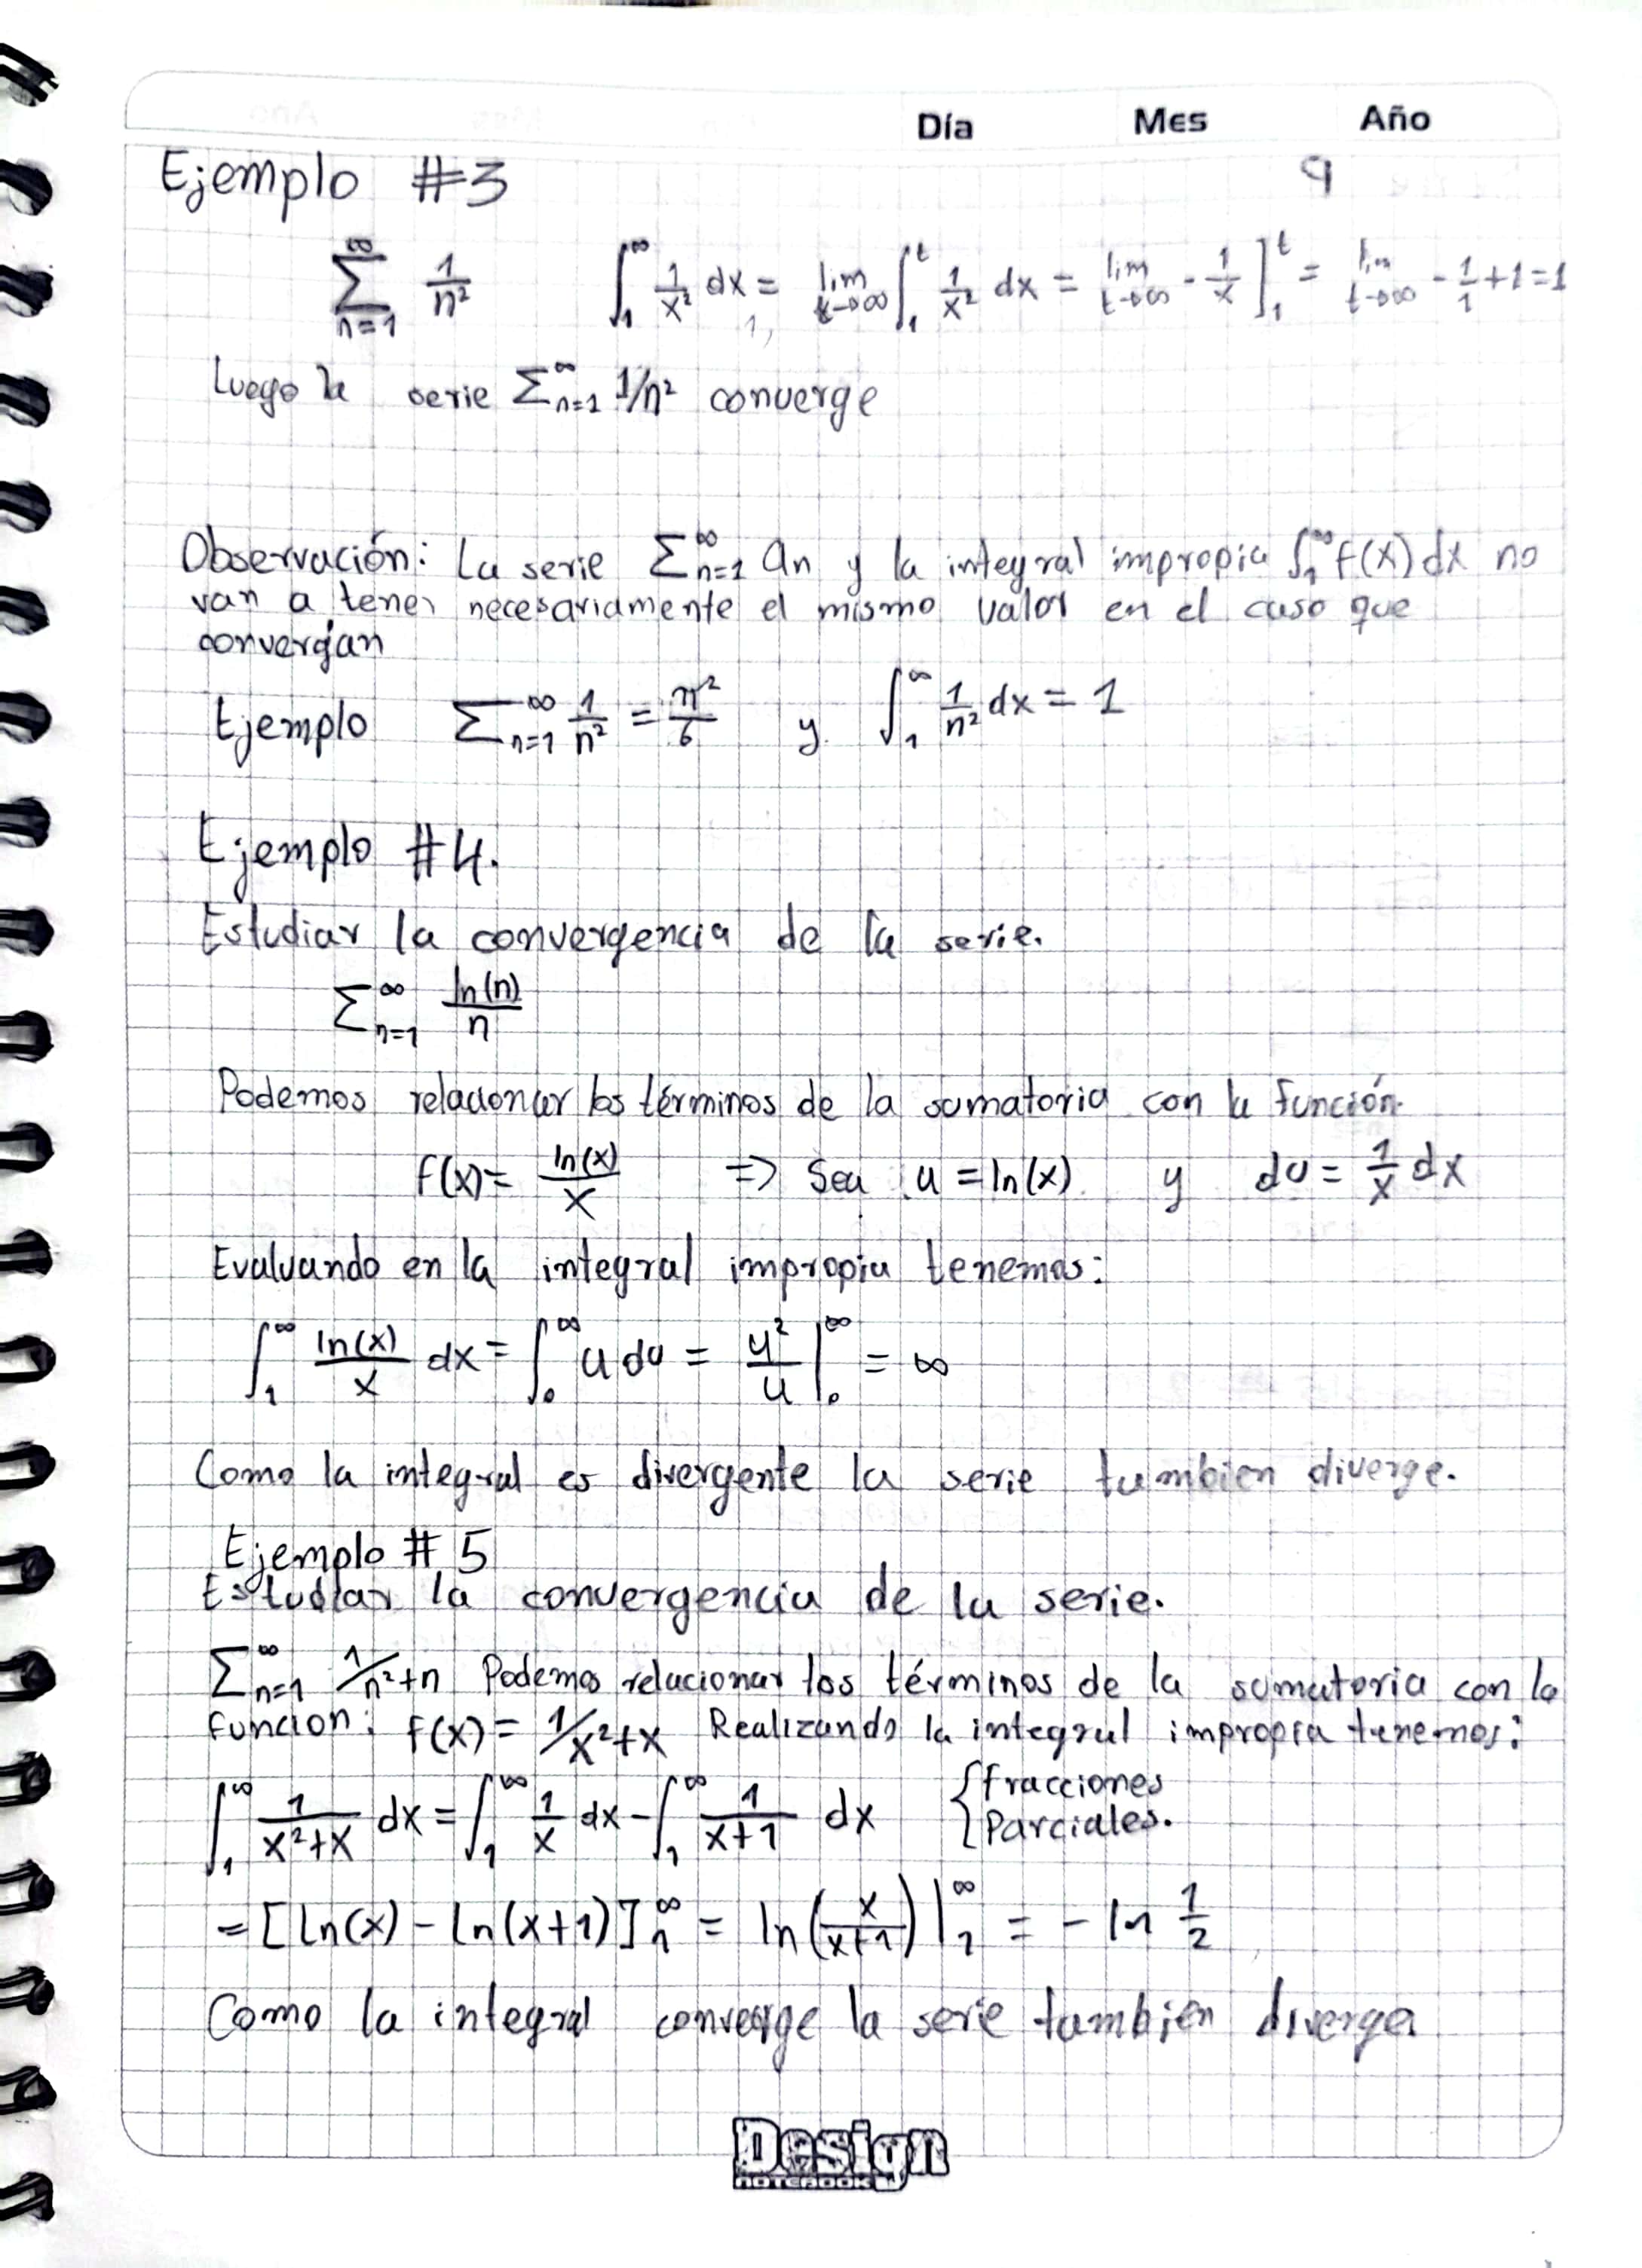 Día Mes Año
Ejemplo #3 9
∑_{n=1}^{∞} 1/n² ∫_1^∞ 1/x² dx = lim_{t→∞} ∫_1^t 1/x² dx = lim_{t→∞} -1/x ]_1^t = lim_{t→∞} -1/1 + 1 = 1
Luego la serie ∑_{n=1}^{∞} 1/n² converge
Observación: La serie ∑_{n=1}^{∞} an y la integral impropia ∫_1^∞ f(x) dx no
van a tener necesariamente el mismo valor en el caso que
convergan
Ejemplo ∑_{n=1}^{∞} 1/n² = π²/6 y ∫_1^∞ 1/n² dx = 1
Ejemplo #4.
Estudiar la convergencia de la serie.
∑_{n=1}^{∞} ln(n)/n
Podemos relacionar los términos de la sumatoria con la función
f(x) = ln(x)/x => Sea u = ln(x) y du = 1/x dx
Evaluando en la integral impropia tenemos:
∫_1^∞ ln(x)/x dx = ∫_0^∞ u du = u²/u |_0^∞ = ∞
Como la integral es divergente la serie tambien diverge.
Ejemplo # 5
Estudiar la convergencia de la serie.
∑_{n=1}^{∞} 1/n²+n Podemos relacionar los términos de la sumatoria con la
funcion: f(x) = 1/x²+x Realizando la integral impropia tenemos:
∫_1^∞ 1/x²+x dx = ∫_1^∞ 1/x dx - ∫_1^∞ 1/x+1 dx { fracciones
Parciales.
= [ln(x) - ln(x+1)]_1^∞ = ln(x/x+1) |_1^∞ = - ln 1/2
Como la integral converge la serie tambien diverge
Design
NOTEBOOK